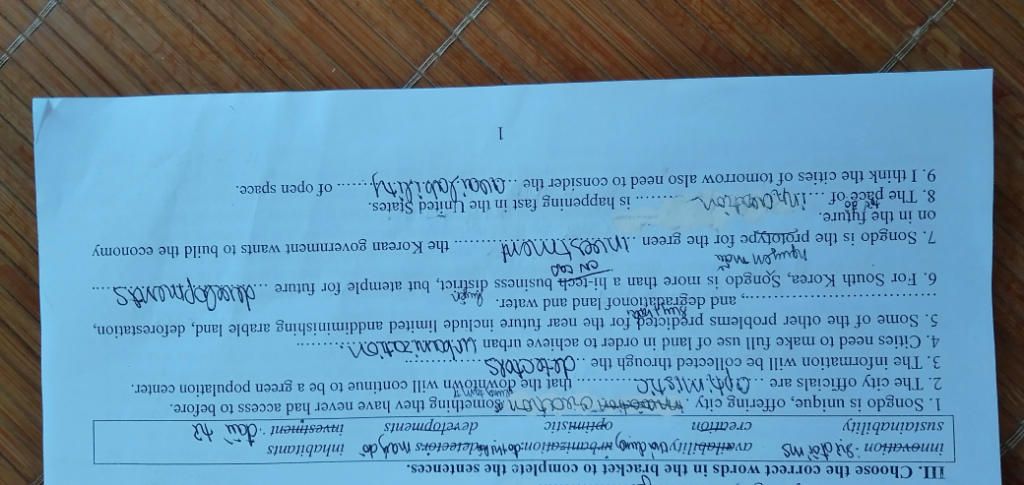 III. Choose the correct words in the bracket to complete the sentences.
innovation: sự đổi ms availability urbanization detectors máy dò inhabitants
sustainability creation optimistic developments investment: đầu tư
1. Songdo is unique, offering city creation something they have never had access to before.
2. The city officials are ...optimistic.......... that the downtown will continue to be a green population center.
3. The information will be collected through the ..detectors..........
4. Cities need to make full use of land in order to achieve urban urbanization..........
5. Some of the other problems predicted for the near future include limited anddiminishing arable land, deforestation,
.............................., and degradationof land and water.
6. For South Korea, Songdo is more than a hi-tech business district, but atemple for future ...developments....
nguyên mẫu
7. Songdo is the prototype for the green ..investment......... the Korean government wants to build the economy
on in the future.
8. The pace of ... ........ is happening fast in the United States.
9. I think the cities of tomorrow also need to consider the ...availability...... of open space.
1